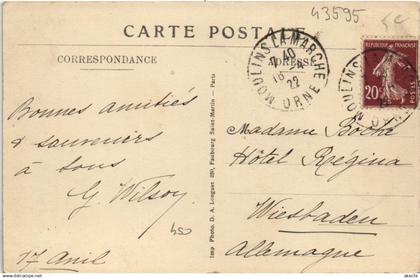 43595
5c
CARTE POSTALE
CORRESPONDANCE
ADRESSE
MOULINS LA MARCHE
ORNE
22
REPUBLIQUE FRANÇAISE
20c
POSTES
Bonnes amitiés
& souvenirs
à tous
G. Wilsoy
17 Avril
450
Imp Photo. D. A. Longuet 250, Faubourg Saint-Martin - Paris
Madame Boché
Hôtel Régina
Wiesbaden
Allemagne